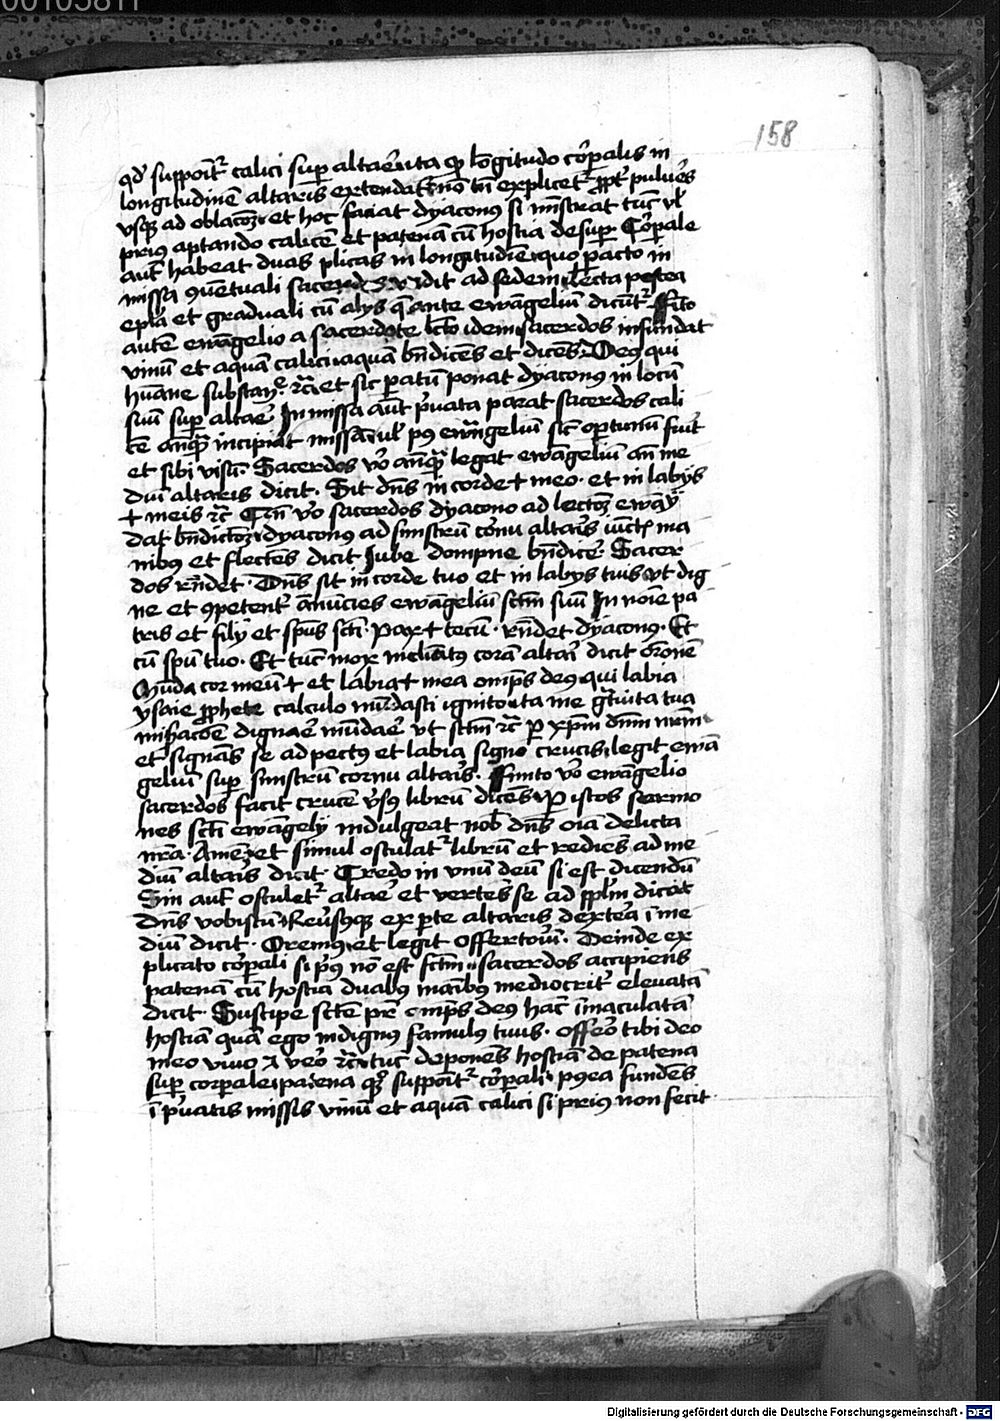 00105811
158
qd' suppoit᷑ calici sup altar̄ ita qp longitudo corp̄alis in
longitudinē altaris extendat᷑ nō tn̄ explicet᷑ ppt' pulu'es
vsq; ad oblacōz et hoc faciat dyaconꝰ si mīstrat tūc vl'
prius aptando calicē et patenā cū hostia desup. Corp̄ale
aut̄ habeat duas plicas in longitudinē quo pacto in
missa ꝯuentuali sacerd vadit ad sedem lecta postea
epl̄a et graduali cū alijs q̄ ante ewāgeliū dicūt᷑ ffīto
autē ewāgelio a sacerdote lc̄to idem sacerdos infundat
vinū et aquā calici aquā bn̄dicēs et dicēs Deꝰ qui
hūane substan. rc̄ et sic p̄atū ponat dyaconꝰ in locū
suū sup altar̄ In missa aut̄ p̄uata parat sacerdos cali
cē anq̄ incipiat missā vl' pꝰ ewāngeliū sic̄ optunū fu'it
et sibi visū Sacerdos vo anq̄ legat ewāgeliū an̄ me
diū altaris dicit. Sit dn̄s in corde + meo. et in labijs
+ meis rc̄ Cū vo sacerdos dyacono ad lectōz ewāg
dat bn̄dictōz dyaconꝰ ad sinistrū cornu altaris iūct ma
nibus et flectens dicit Jube dompne bn̄dic'e Sacer
dos rn̄det. Dn̄s sit in corde tuo et in labijs tuis vt dig
ne et ꝯpetent' annūcies ewāgeliū sctm̄ suū In noīe pa
tris et filij et spūs sct̄i. Pax + tecū. rn̄det dyaconꝰ. Et
cū spū tuo. Et tūc mox inclinatꝰ corā altari dicit or̄onē
Mūda cor meū + et labia + mea omp̄s deꝰ qui labia
ysaie pphete calculo mūdasti ignito ita me gr̄ita tua
mis̄acōe dignar̄ mūdar̄ vt sctm̄ rc̄ p xp̄m dn̄m nrm̄
et signans se ad pectꝰ et labia signo crucis legit ewā
geliū sup sinistrū cornu altaris. ffinito vo ewāgelio
sacerdos facit crucē v'sꝰ librū dicēs P istos sermo
nes sct̄i ewāgelij indulgeat nob̄ dn̄s oīa delicta
nr̄a. Amen et simul osculat᷑ librū et rediēs ad me
diū altaris dicit. Credo in vnū deū si est dicendū
Sin aut̄ osculet᷑ altar̄ et vertēs se ad pplm̄ dicat
Dn̄s vobiscū Reu'susq; ex p̄te altaris dextera ī me
diū dicit. Oremꝰ et legit offertoriū. Deinde ex
plicato corp̄ali si pꝰ nō est fctm̄ sacerdos accipiens
patenā cū hostia duabꝰ manibꝰ mediocrit' eleuatā
dicit. Suscipe sctē pr̄ omp̄s deꝰ hāc īmaculatā
hostiā quā ego indignꝰ famulus tuus. offero tibi deo
meo viuo et vero rc̄ tūc deponēs hostiā de patena
sup corpale patena q̄ suppoit᷑ corp̄ali. pꝰea fundēs
ī p̄uatis missis vinū et aquā calici si prius non fecit
Digitalisierung gefördert durch die Deutsche Forschungsgemeinschaft - DFG